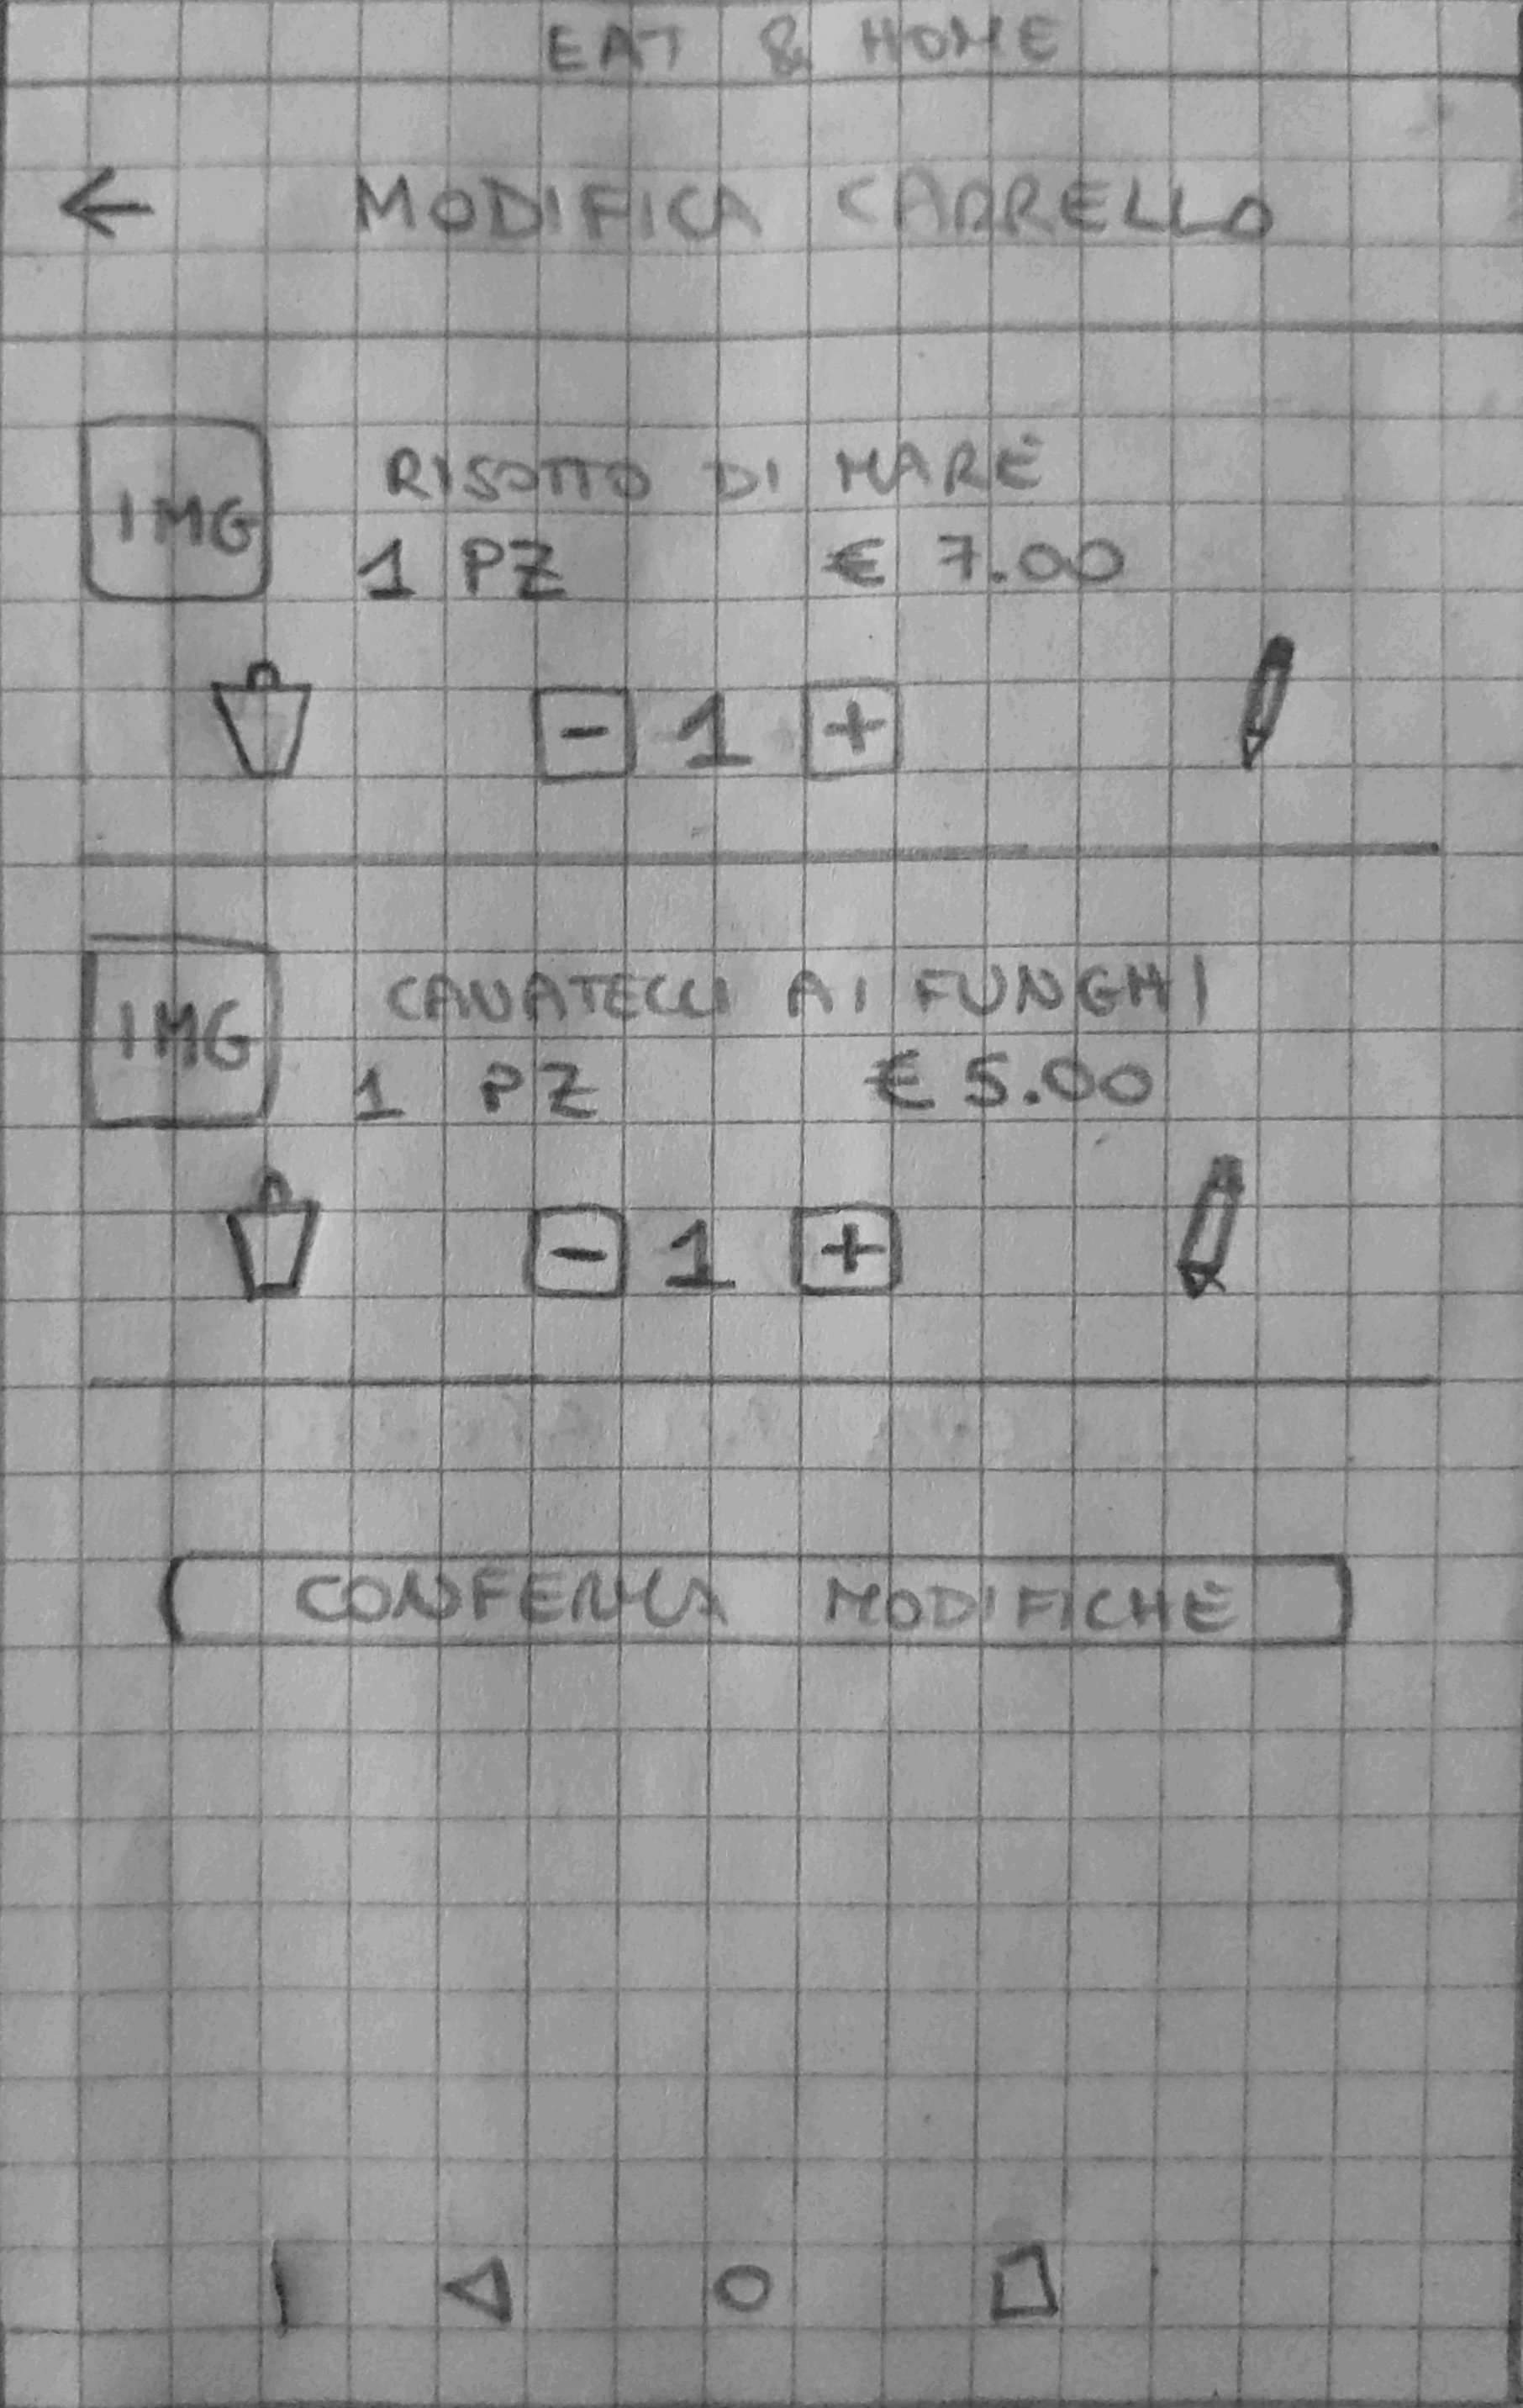 EAT & HOME
← MODIFICA CARRELLO
IMG
RISOTTO DI MARE
1 PZ € 7.00
- 1 +
IMG
CAVATELLI AI FUNGHI
1 PZ € 5.00
- 1 +
CONFERMA MODIFICHE